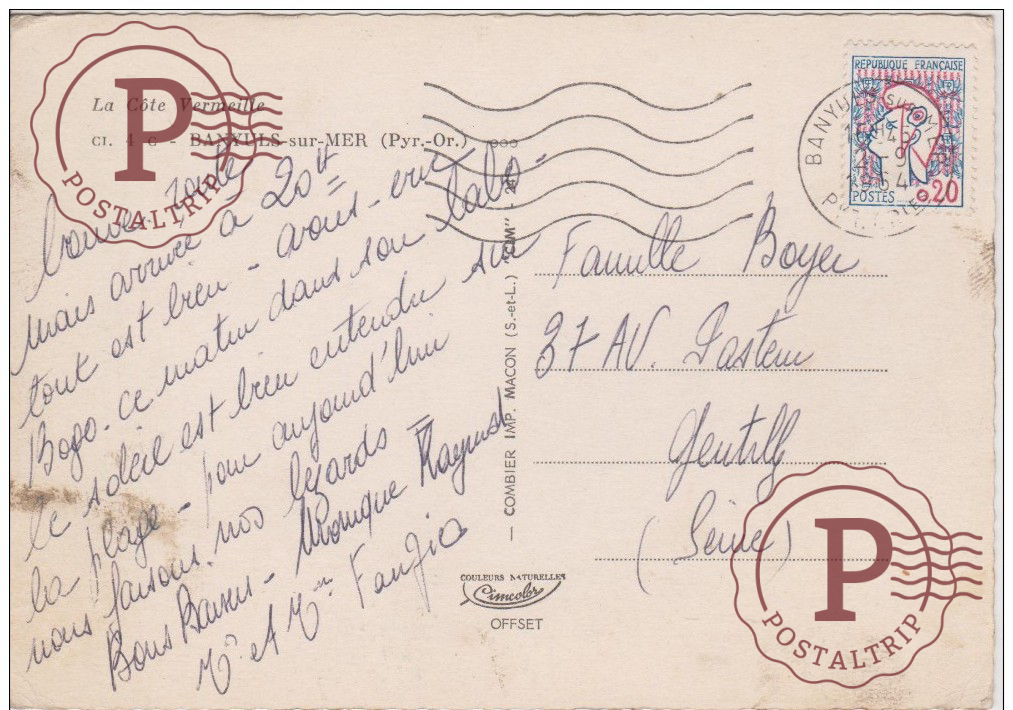 La Côte Vermeille
CI. 4 C - BANYULS-sur-MER (Pyr.-Or.)
route
mais arrivée à 20H
tout est bien - avons-
Bogo. ce matin dans son
le soleil est bien entendu sur
la plage - pour aujourd'hui
nous faisons nos lézards =
Bons Baisers - Monique Raymond
Mr et Mme Fangio
— COMBIER IMP. MACON (S.-et-L.) "CIM"
COULEURS NATURELLES
Cimcolor
OFFSET
RÉPUBLIQUE FRANÇAISE
POSTES 0,20
BANYULS SUR MER
1964
Famille Boyer
37 AV. Pasteur
Gentilly
(Seine)
P
POSTALTRIP
P
POSTALTRIP